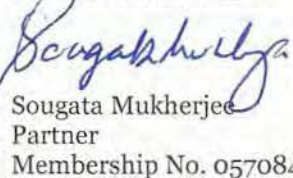 Sougata Mukherjee
Partner
Membership No. 057084